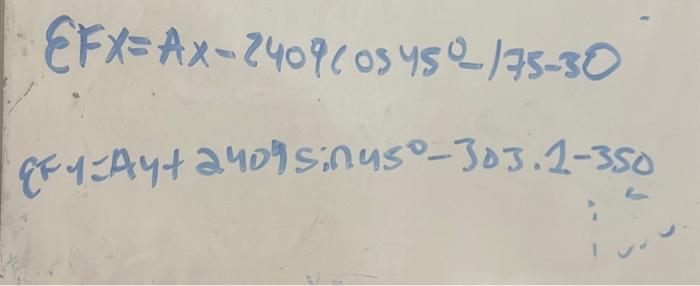 ΣFX=AX-2409cos45°-175-30
ΣFY=Ay+2409sin45°-303.1-350